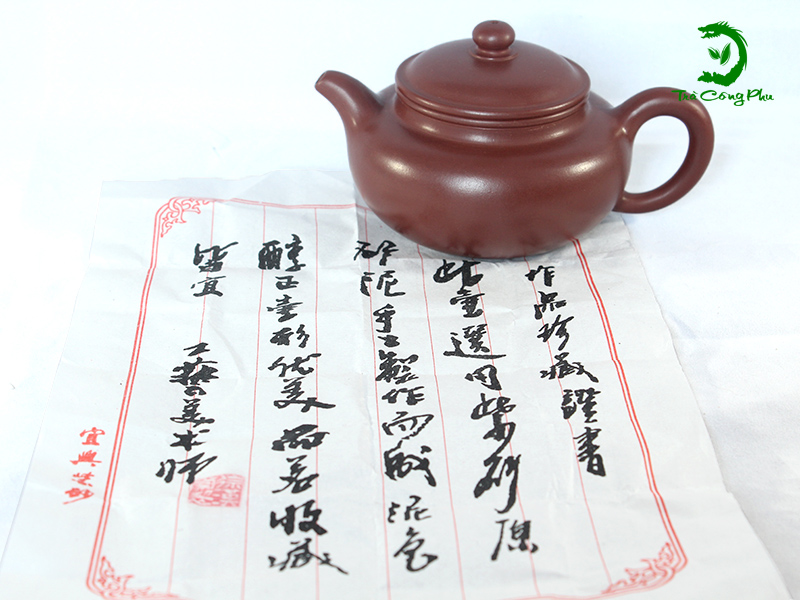 Trà Công Phu
作品珍藏證書
此壶選用紫砂原
泥手工製作而成泥色
醇正壶形优美品茗收藏
皆宜 工藝美术师
宜興紫砂